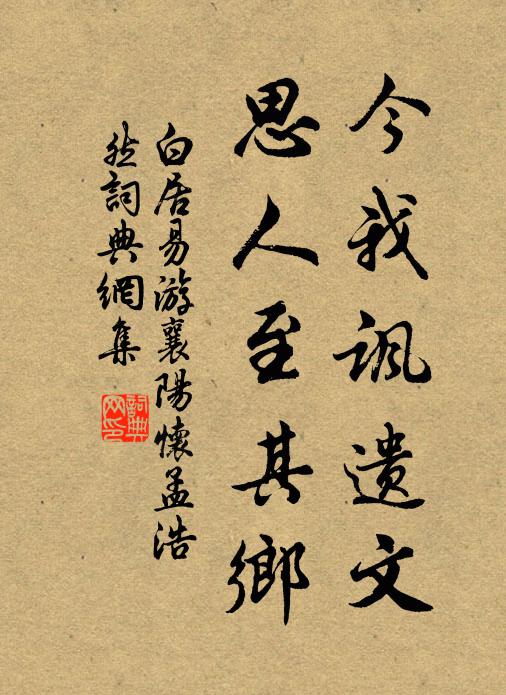 今我諷遗文
思人至其鄉
白居易游襄陽懷孟浩
然詞典網集
詞典
网印